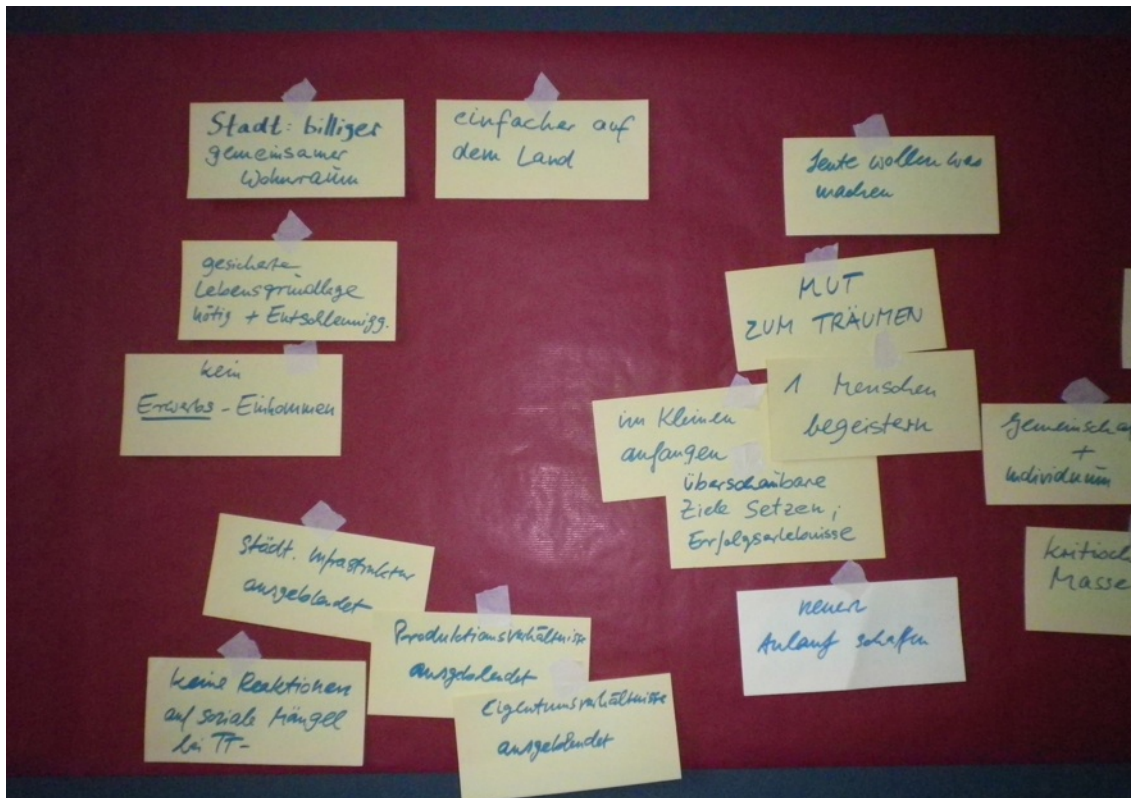 Stadt: billiger
gemeinsamer
Wohnraum
einfacher auf
dem Land
Leute wollen was
machen
gesicherte
Lebensgrundlage
nötig + Entschleunigg.
kein
Erwerbs - Einkommen
MUT
ZUM TRÄUMEN
1 Menschen
begeistern
im Kleinen
anfangen
überschaubare
Ziele Setzen,
Erfolgserlebnisse
Gemeinscha
+
Individuum
kritisch
Masse
Städt. Infrastruktur
ausgeblendet
Produktionsverhältnisse
ausgeblendet
Eigentumsverhältnisse
ausgeblendet
keine Reaktionen
auf soziale Mängel
bei TT-
neuen
Anlauf schaffen